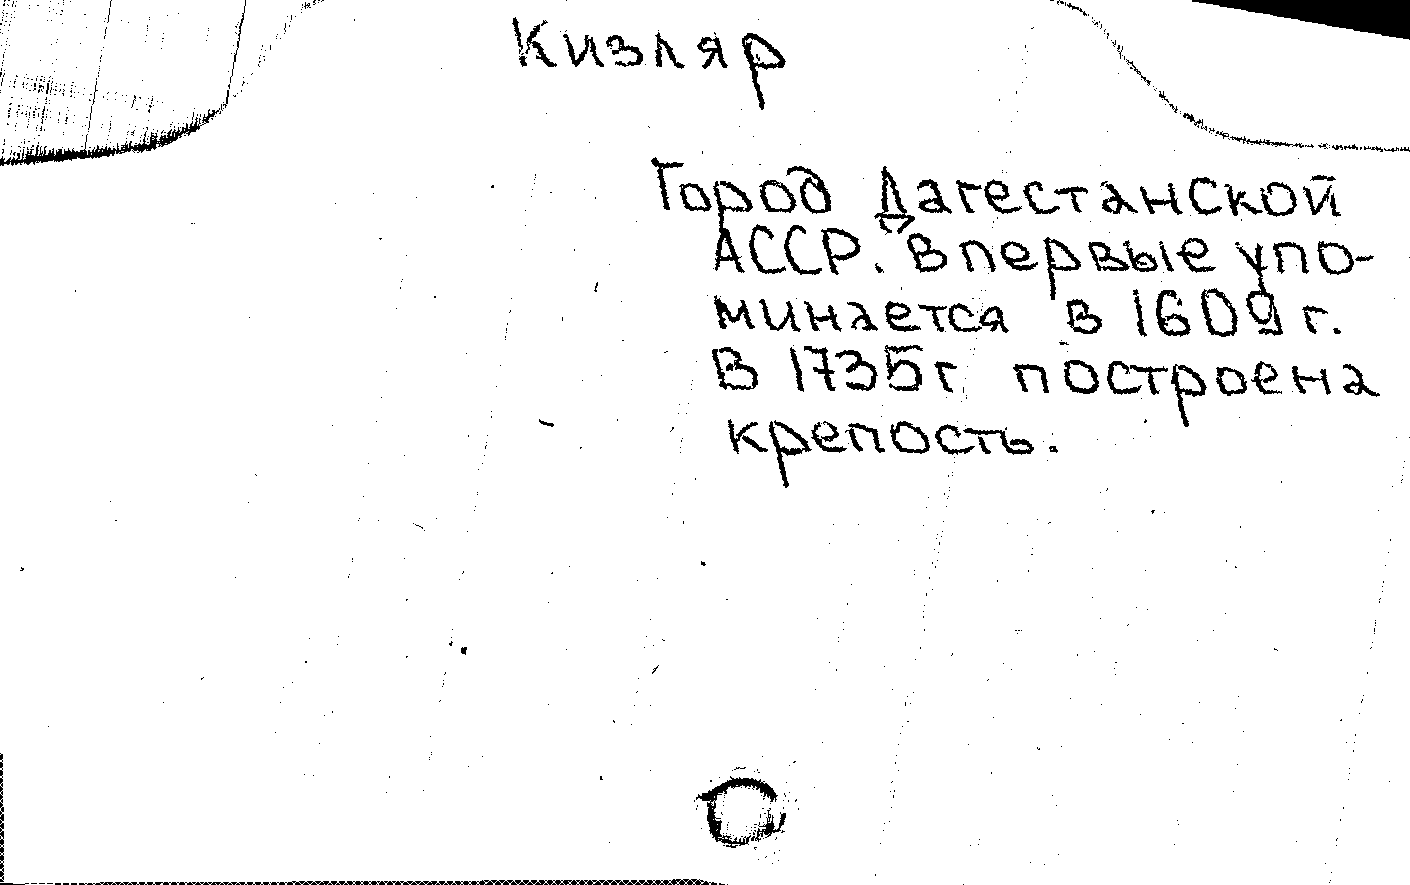 Кизляр
Город Дагестанской
АССР. Впервые упо-
минается в 1609 г.
В 1735 г построена
крепость.